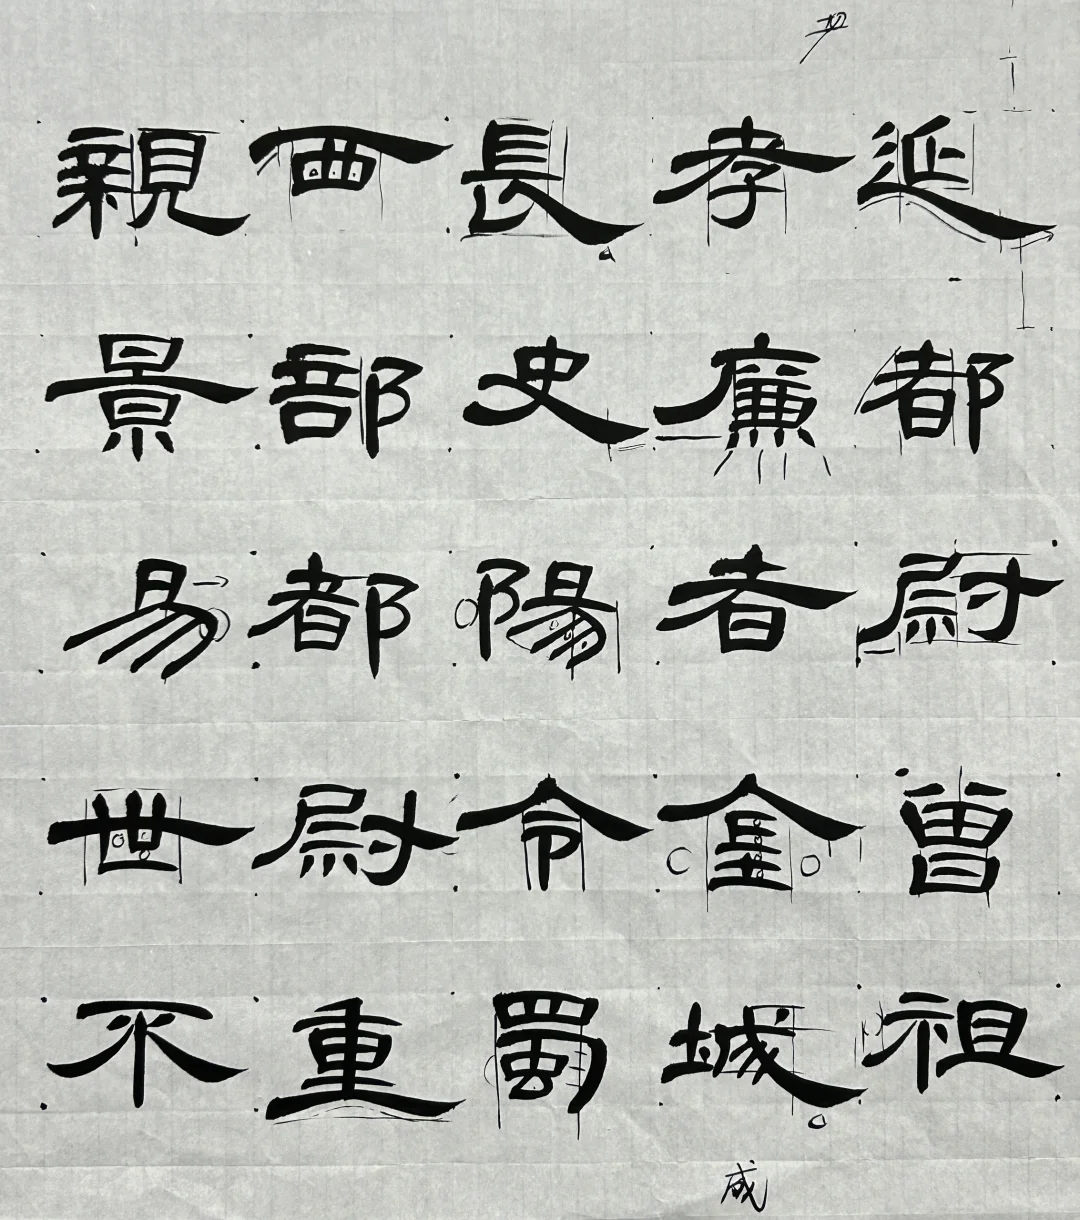 延都尉曾祖
孝廉者金城
長史陽令蜀
西部都尉重
親景易世不